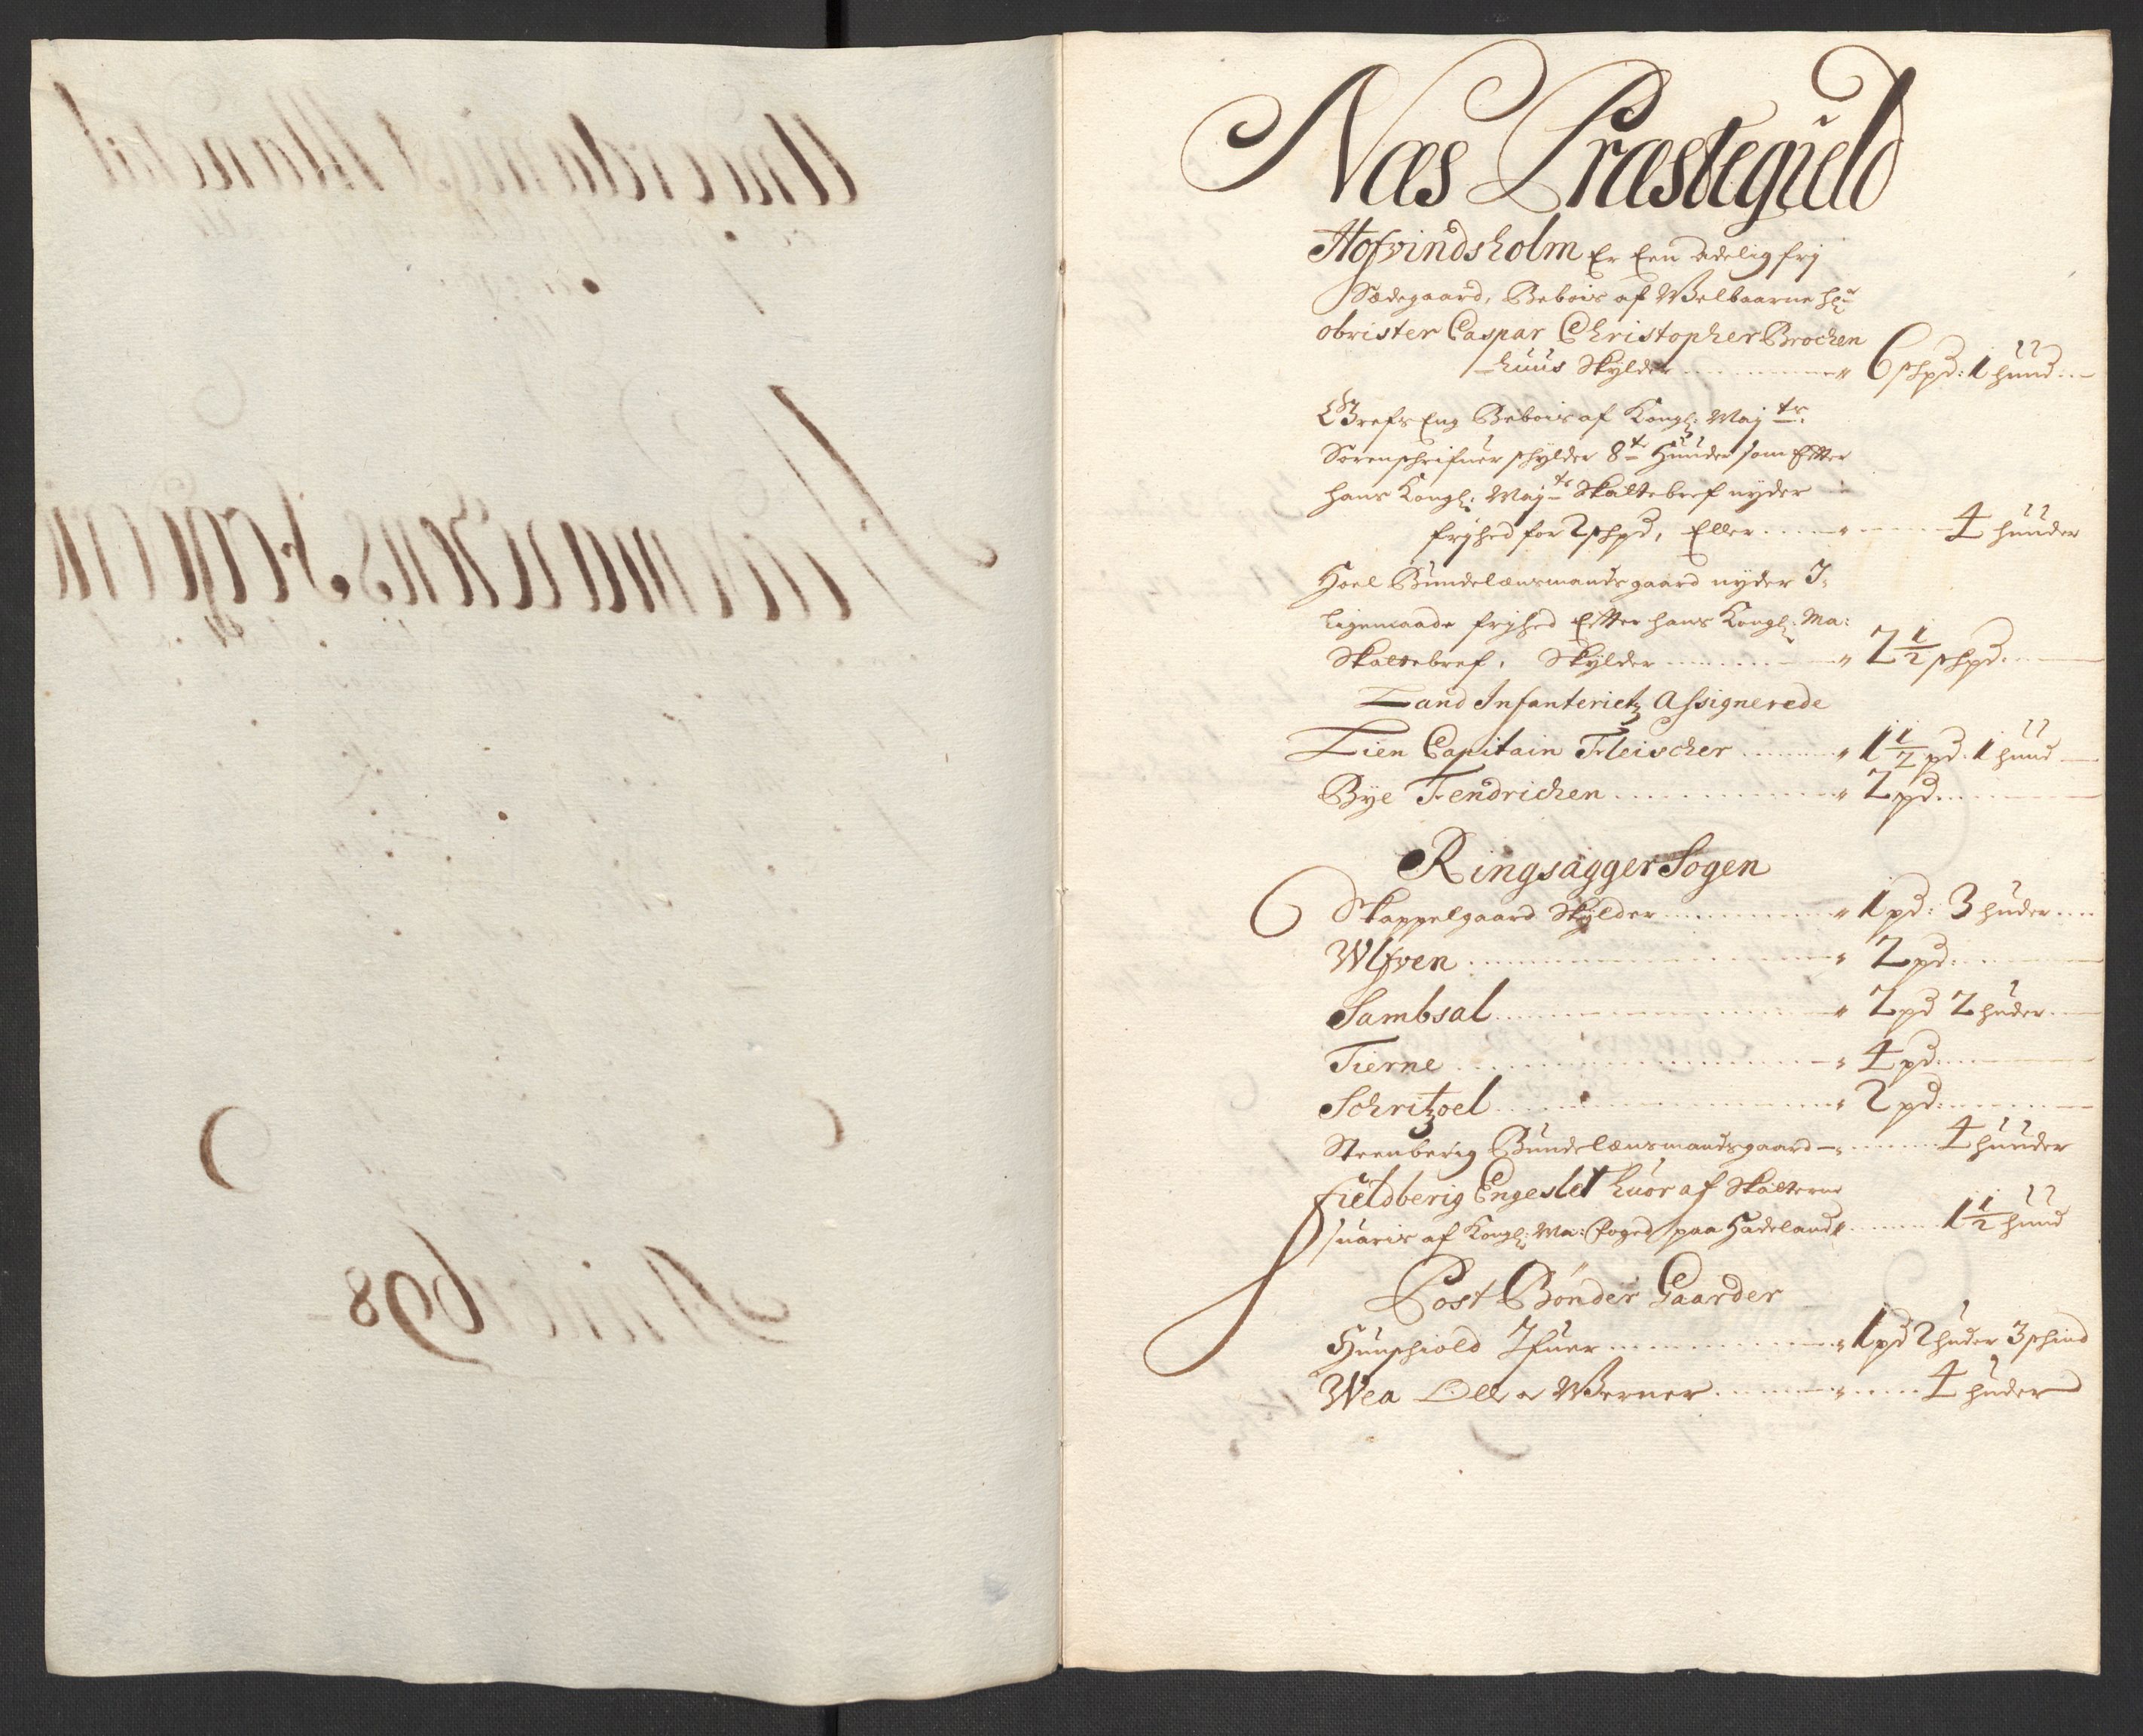 Næs Præstegield
Hofvindsholm Er Een Adelig frj
Sædegaard, Bebois af Welbaarne Hr
obrister Caspar Christopher Brochen
-huus Skÿlder ......... " 6 schpd: 1 huud
Grefs Eng Bebois af Kongl: Maÿts
Sorenschrifuer schÿlder 8te Huuder som Efter
hans Kongl: Maÿts Skattebref nÿder
frÿhed for 2 schpd, Eller ......... 4 huuder
Hoel Bundelænsmandsgaard nÿder I-
ligemaade frÿhed Efter hans Kongl: Ma:
Skattebref, Skÿlder ......... " 2 1/2 schpd
Land Infanterietz Assignerede
Lien Capitain Fleischer ......... " 1 1/2 pd. 1 huud
Bÿe Fendrichen ......... " 2 pd
Ringsagger Sogen
Skappelgaard Skÿlder ......... " 1 pd: 3 huder
Wlfven ......... " 2 pd
Sambsal ......... " 2 pd 2 huder
Tierne ......... " 4 pd
Schritzoel ......... " 2 pd
Steenberig Bundelænsmandsgaard ......... 4 huuder
Fieldberig Engeslet huor af Skatterne
suaris af Kongl: Ma: Foged paa Hadeland ......... 1 1/2 huud
Post Bønder Gaarder
Hunschiold Ifuer ......... " 1 pd 2 huder 3 schind
Wea Olle Werner ......... " 4 huder